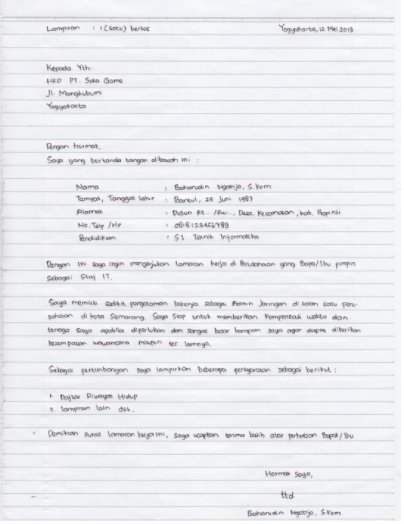 Lampiran : 1 (Satu) berkas Yogyakarta, 12 Mei 2013
Kepada Yth.
HRD PT. Suka Game
Jl. Mangkubumi
Yogyakarta
Dengan hormat,
Saya yang bertanda tangan dibawah ini :
Nama : Baharudin Ngatijo, S.Kom
Tempat, Tanggal lahir : Bantul, 25 Juni 1987
Alamat : Dusun Rt.. /Rw.., Desa, Kecamatan, Kab, Propinsi
No. Telp /HP : 08
Pendidikan : S1 Teknik Informatika
Dengan ini saya ingin mengajukan lamaran kerja di Perusahaan yang Bapak/Ibu pimpin
Sebagai Staf IT.
Saya memiliki sedikit pengalaman bekerja sebagai Admin Jaringan di salah satu peru-
sahaan di kota Semarang. Saya Siap untuk memberikan kompensasi waktu dan
tenaga saya apabila diperlukan dan sangat besar harapan saya agar dapat diberikan
kesempatan wawancara maupun tes lainnya.
Sebagai pertimbangan saya lampirkan beberapa persyaratan sebagai berikut :
1. Daftar Riwayat Hidup
2. lampiran lain dst.
Demikian surat lamaran kerja ini, saya ucapkan terima kasih atas perhatian Bapak/Ibu
Hormat Saya,
ttd
Baharudin Ngatijo, S.Kom